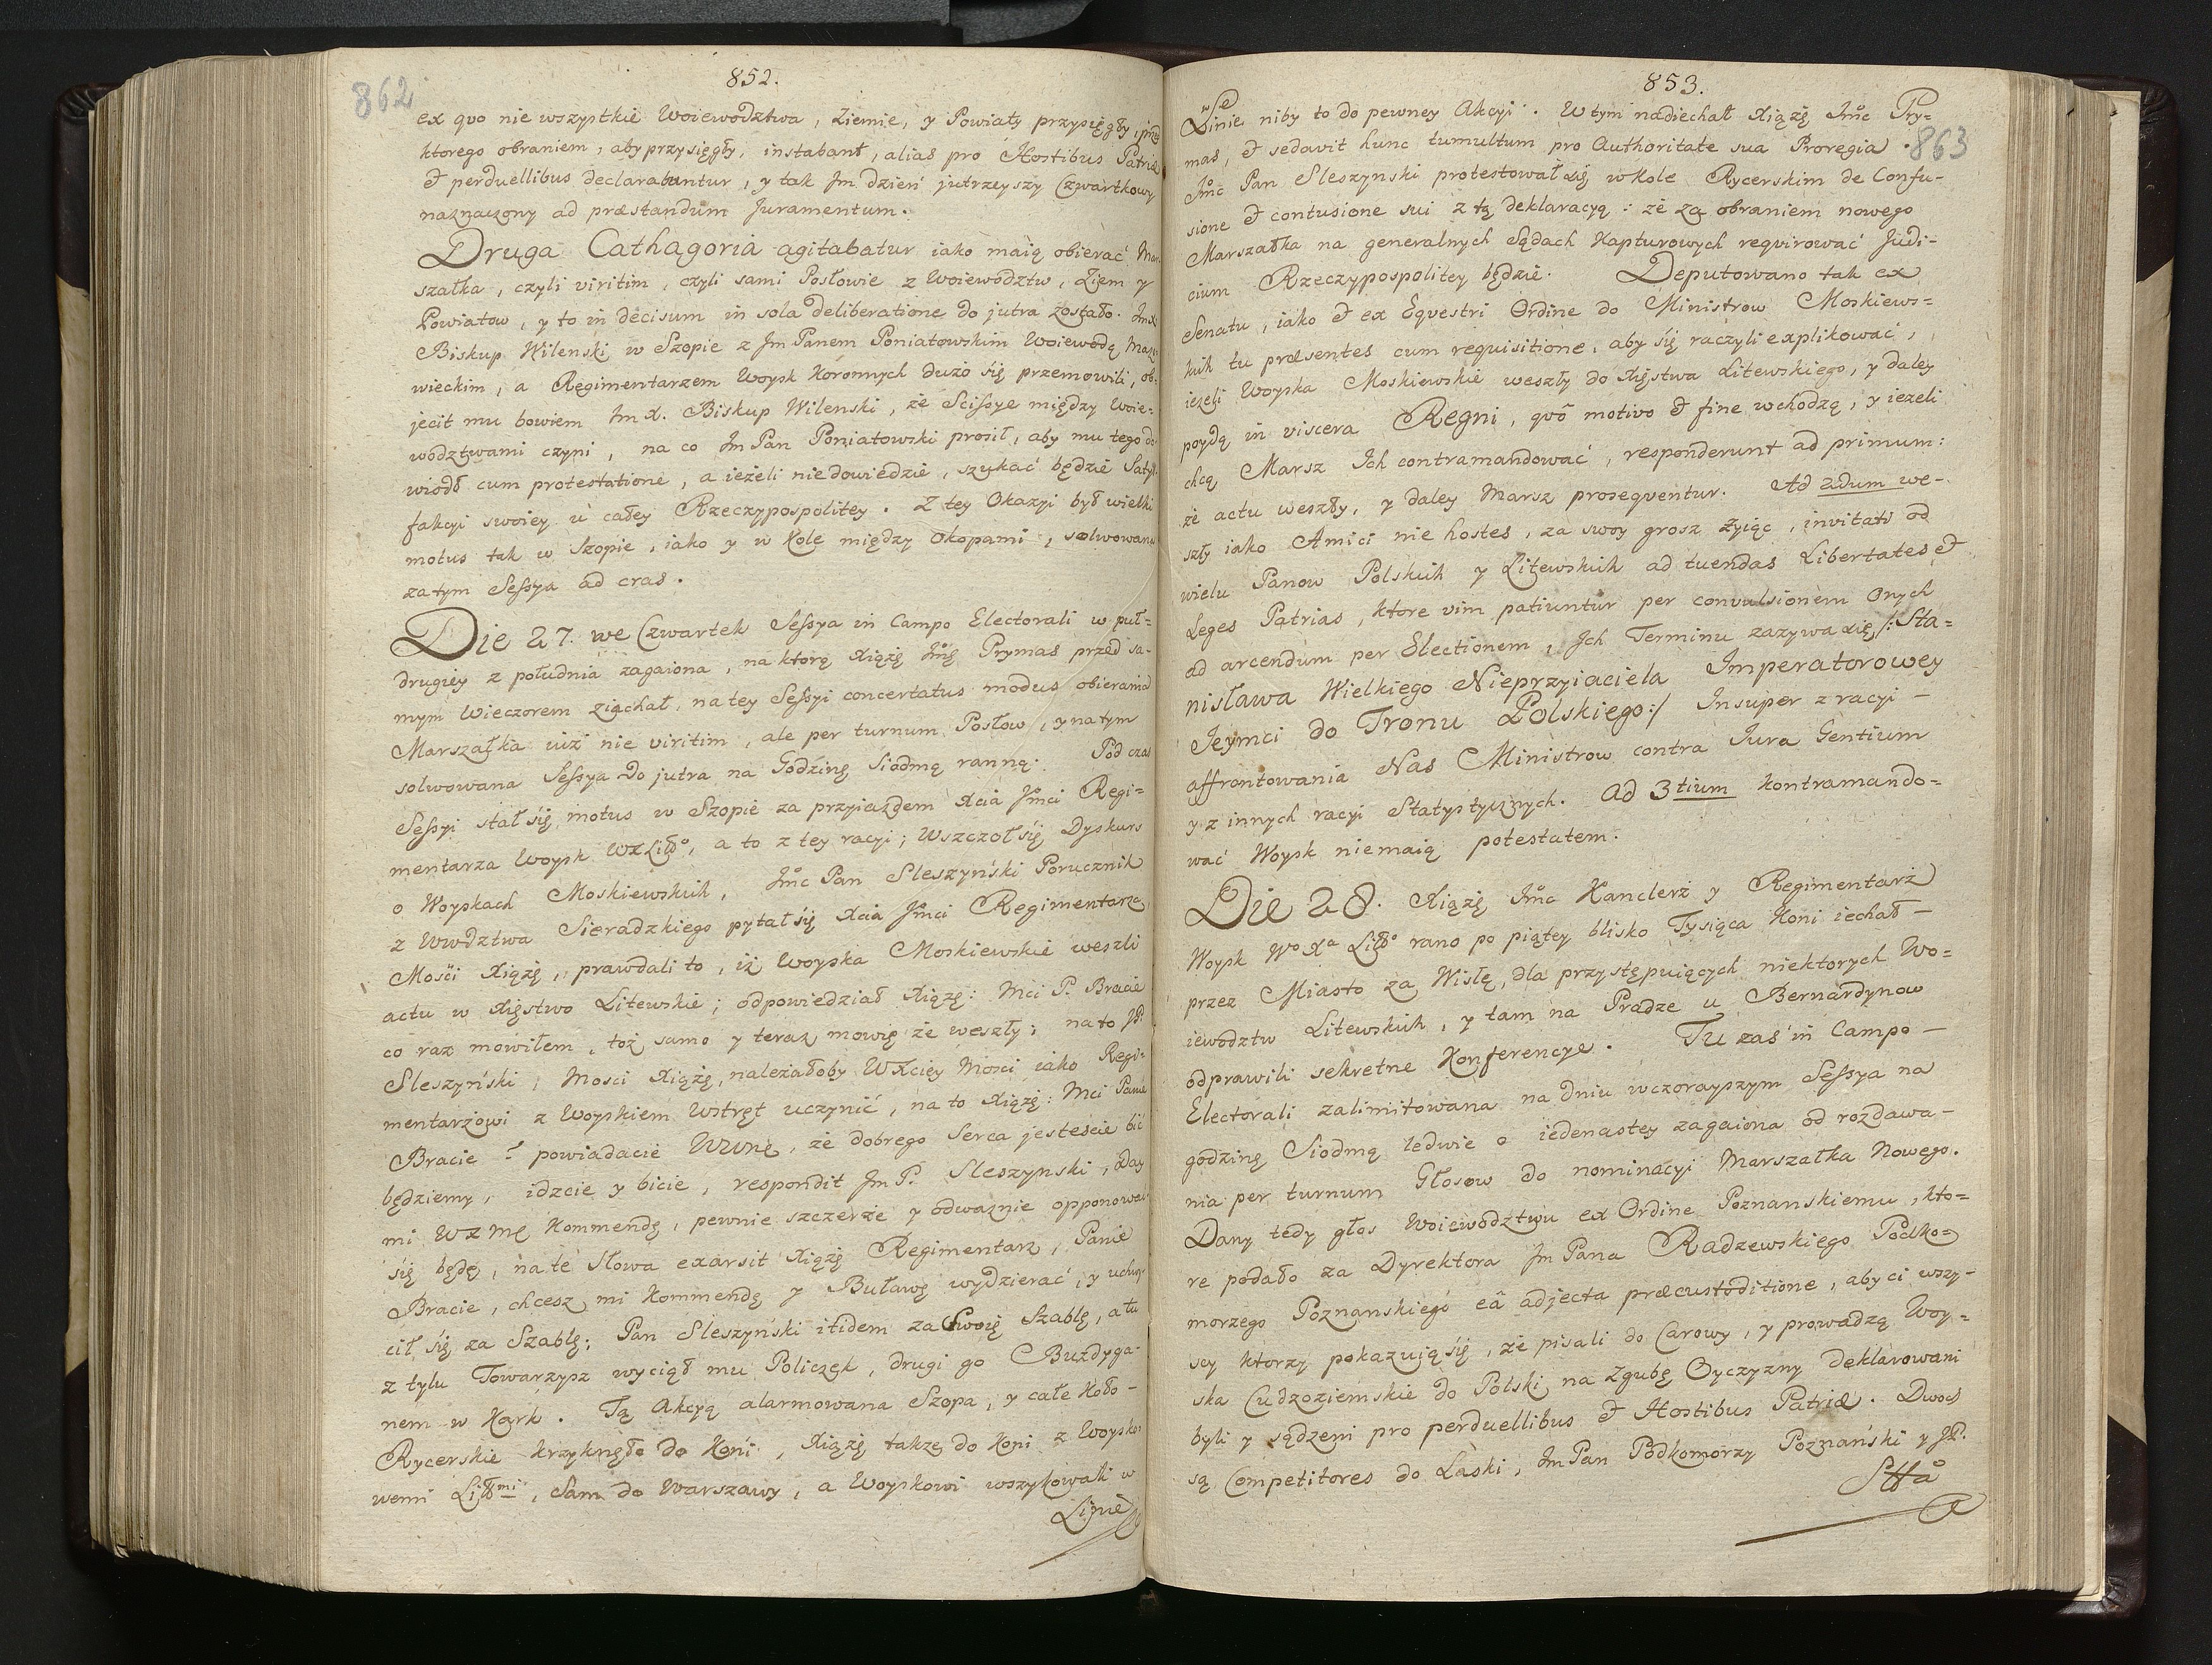 852.
862
ex quo nie wszystkie Woiewodztwa, Ziemie, y Powiaty przysięgły,
ktorego obraniem, aby przysięgły, instabant, alias pro Hostibus Patriæ
et perduellibus declarabuntur, y tak Jm dzień jutrzeyszy Czwartkowy
naznaczony ad præstandum Juramentum.
Druga Cathagoria agitabatur iako maią obierać Mar-
szałka, czyli viritim, czyli sami Posłowie z Woiewodztw, Ziem y
Powiatow, y to in decisum in sola deliberatione do jutra zostało. Jmx
Biskup Wilenski w Szopie z Jm Panem Poniatowskim Woiewodą Mazo-
wieckim, a Regimentarzem Woysk Koronnych dużo się przemowili, ob-
jecit mu bowiem Jm X. Biskup Wilenski, że Scissye między Woie=
wodztwami czyni, na co Jm Pan Poniatowski prosił, aby mu tego do-
wiodł cum protestatione, a ieżeli niedowiedzie, szukać będzie Satys-
fakcyi swoiey u całey Rzeczypospolitey. Z tey Okazyi był wielki
motus tak w Szopie, iako y w Kole między Okopami, solwowana
zatym Sessya ad cras.
Die 27. we Czwartek Sessya in Campo Electorali w puł=
drugiey z południa zagaiona, na ktorą Xiążę Jmć Prymas przed sa-
mym Wieczorem ziachał, na tey Sessyi concertatus modus obierania
Marszałka iuż nie viritim, ale per turnum Posłow, y na tym
solwowana Sessya do jutra na Godzinę Siodmą ranną. Pod czas
Sessyi stał się motus w Szopie za przyiazdem Xcia Jmci Regi=
mentarza Woysk WXLitto, a to z tey racyi; Wszczoł się Dyskurs
o Woyskach Moskiewskich, Jmc Pan Sleszyński Porucznik
z Wwdztwa Sieradzkiego pytał się Xcia Jmci Regimentarza
Mosći Xiążę, prawdali to, iż Woyska Moskiewskie weszli
actu w Xięstwo Litewskie; odpowiedział Xiążę: Mci P. Bracie
co raz mowiłem, toż samo y teraz mowię że weszły; na to JP.
Sleszyński, Mosci Xiążę, należałoby WXciey Mosci iako Regi-
mentarzowi z Woyskiem Wstręt uczynić, na to Xiążę: Mci Panie
Bracie powiadacie, że dobrego Serca jesteście bić
będziemy, idzcie y bicie, respondit Jm P. Sleszynski, Day
mi Kommendę, pewnie szczerze y odważnie opponować
się będę, na te Słowa exarsit Xiążę Regimentarz, Panie
Bracie, chcesz mi Kommendę y Buławę wydzierać, y uchwy-
cił się za Szablę; Pan Sleszyński itidem za Swoię Szablę, a tu
z tylu Towarzysz wyciął mu Policzek, drugi go Buzdyga-
nem w Kark. Tą Akcyą alarmowana Szopa, y całe Koło-
Rycerskie krzyknęło do Koni, Xiążę także do Koni z Woysko-
wemi Littmi, Sam do Warszawy, a Woyskowi wszykowali w
Linie
853.
863
Linie niby to do pewney Akcyi. W tym nadiechał Xiążę Jmc Pry-
mas, et sedavit hunc tumultum pro Authoritate sua Proregia.
Jmc Pan Sleszynski protestował się w Kole Rycerskim de Confu-
sione et contusione sui z tą deklaracyą: że za obraniem nowego
Marszałka na generalnych Sądach Kapturowych reqvirować Judi-
cium Rzeczypospolitey będzie. Deputowano tak ex
Senatu, iako et ex Eqvestri Ordine do Ministrow Moskiews=
kich tu præsentes cum requisitione, aby się raczyli explikować,
ieżeli Woyska Moskiewskie weszły do Xięstwa Litewskiego, y daley
poydą in viscera Regni, quô motivo et fine wchodzą, y ieżeli
chcą Marsz Jch contramandować, responderunt ad primum:
że actu weszły, y daley Marsz proseqventur. Ad 2dum we-
szły iako Amici nie hostes, za swoy grosz żyiąc, invitati od
wielu Panow Polskich y Litewskich ad tuendas Libertates et
Leges Patrias, ktore vim patiuntur per convulsionem Onych
ad arcendum per Electionem, Jch Terminu zazywa się /: Sta=
nisława Wielkiego Nieprzyiaciela Imperatorowey
Jeymci do Tronu Polskiego:/ Insuper z racyi -
affrontowania Nas Ministrow contra Jura Gentium
y z innych racyi Statystycznych. Ad 3tium kontramando=
wać Woysk niemaią potestatem.
Die 28. Xiążę Jmc Kanclerz y Regimentarz
Woysk Wo Xa Litto rano po piątey blisko Tysiąca Koni iechał -
przez Miasto za Wisłę, dla przystępuiących niektorych Wo=
iewodztw Litewskich, y tam na Pradze u Bernardynow
odprawili sekretne Konferencye. Tu zaś in Campo -
Electorali zalimitowana na dniu wczorayszym Sessya na
godzinę Siodmą ledwie o iedenastey zagaiona od rozdawa-
nia per turnum Głosow do nominacyi Marszałka Nowego.
Dany tedy głos Woiewodztwu ex Ordine Poznanskiemu, kto=
re podało za Dyrektora Jm Pana Radzewskiego Podko=
morzego Poznanskiego eâ adjecta præcustoditione, aby ci wszy-
scy ktorzy pokazują się, że pisali do Carowy, y prowadzą Woy=
ska Cudzoziemskie do Polski na Zgubę Oyczyzny deklarowani
byli y sądzeni pro perduellibus et Hostibus Patriæ. Dwoch
są Competitores do Laski, Jm Pan Podkomorzy Poznański y JP.
Stta